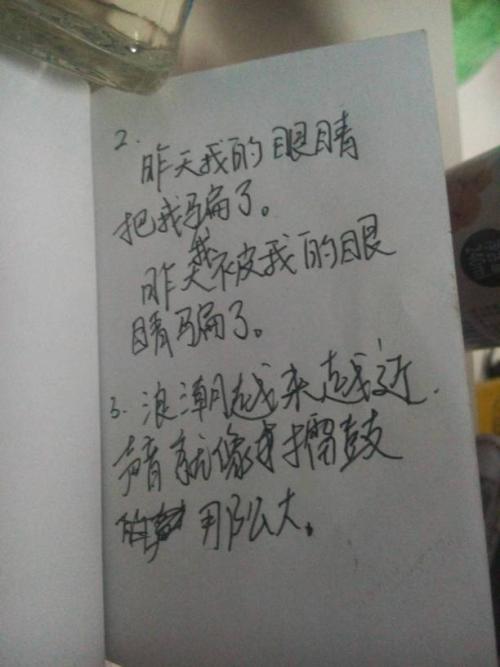 2.
昨天我的眼睛
把我骗了。
昨天我被我的眼
睛骗了。
3. 浪潮越来越近.
声音就像擂鼓
那么大。